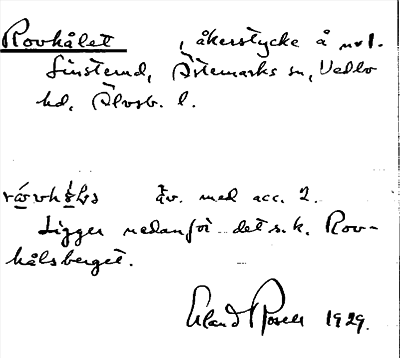 Rovhålet , åkerstycke å nr 1.
Linsterud, Ärtemarks sn, Vedbo
hd, Älvsb. l.
äv. med acc. 2.
Ligger nedanför det s.k. Rov-
hålsberget.
Erland Rosell 1929.